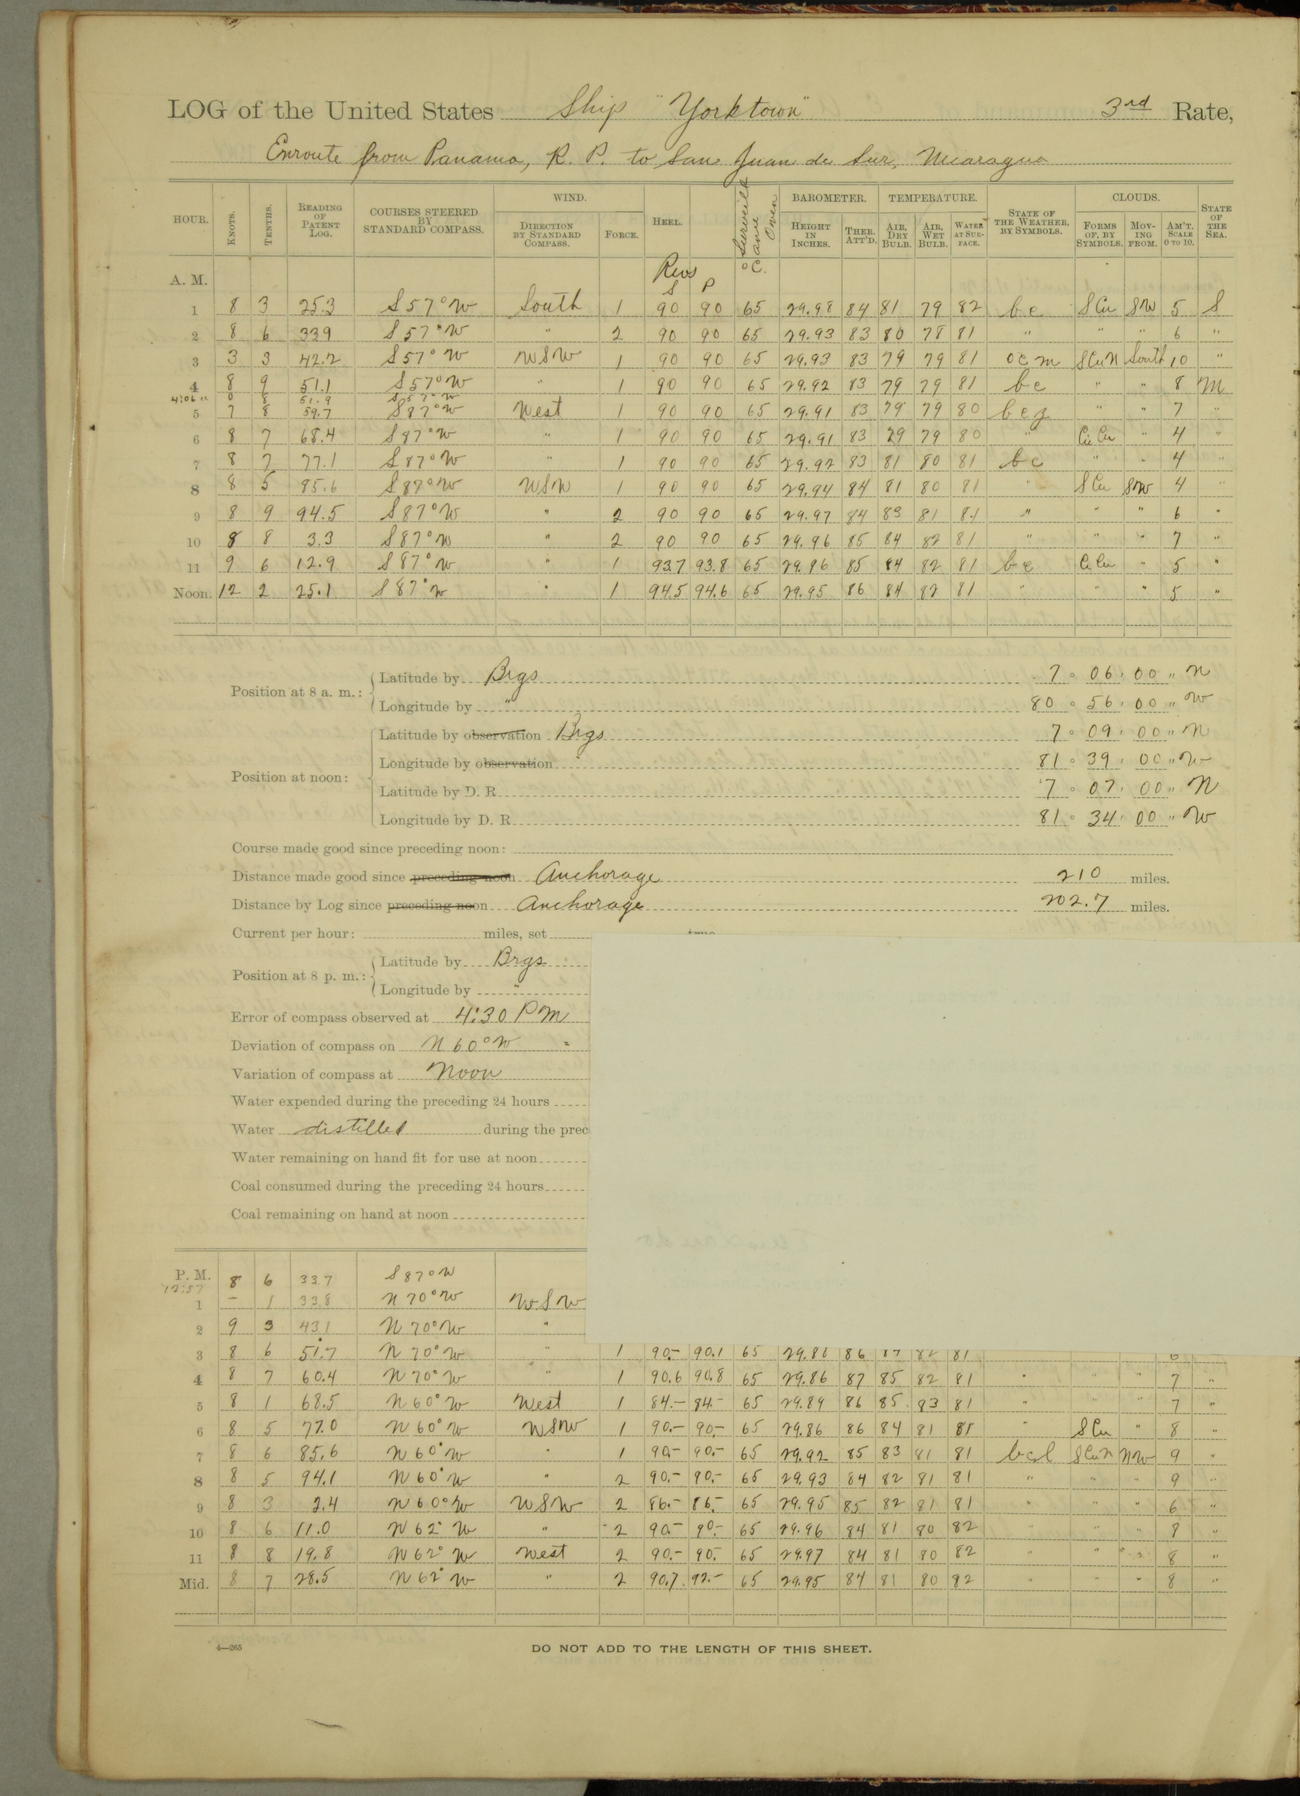 LOG of the United States Ship "Yorktown" 3rd Rate,
Enroute from Panama, R. P. to San Juan de Sur, Nicaragua
HOUR. KNOTS. TENTHS. READING OF PATENT LOG. COURSES STEERED BY STANDARD COMPASS. WIND. DIRECTION BY STANDARD COMPASS. FORCE. HEEL. BAROMETER. HEIGHT IN INCHES. THER. ATT'D. TEMPERATURE. AIR, DRY BULB. AIR, WET BULB. WATER AT SURFACE. STATE OF THE WEATHER, BY SYMBOLS. CLOUDS. FORMS OF, BY SYMBOLS. MOVING FROM. AM'T, SCALE 0 TO 10. STATE OF THE SEA.
A. M. Revs S P °C.
1 8 3 25.3 S 57° W South 1 90 90 65 29.98 84 81 79 82 bc S Cu SW 5 S
2 8 6 33.9 S 57° W " 2 90 90 65 29.93 83 80 78 81 " " " 6 "
3 3 3 42.2 S 57° W WSW 1 90 90 65 29.93 83 79 79 81 ocm S Cu N South 10 "
4 8 9 51.1 S 57° W " 1 90 90 65 29.92 83 79 79 81 bc " " 8 M
4:06 0 8 51.9 S 57° W
5 7 8 59.7 S 87° W West 1 90 90 65 29.91 83 79 79 80 bcq " " 7 "
6 8 7 68.4 S 87° W " 1 90 90 65 29.91 83 79 79 80 " Ci Cu " 4 "
7 8 7 77.1 S 87° W " 1 90 90 65 29.92 83 81 80 81 bc " " 4 "
8 8 5 85.6 S 87° W WSW 1 90 90 65 29.94 84 81 80 81 " S Cu SW 4 "
9 8 9 94.5 S 87° W " 2 90 90 65 29.97 84 83 81 81 " " " 6 "
10 8 8 3.3 S 87° W " 2 90 90 65 29.96 85 84 82 81 " " " 7 "
11 9 6 12.9 S 87° W " 1 93.7 93.8 65 29.96 85 84 82 81 bc Ci Cu " 5 "
Noon. 12 2 25.1 S 87° W " 1 94.5 94.6 65 29.95 86 84 82 81 " " " 5 "
Position at 8 a. m.: Latitude by Brgs 7 ° 06 ' 00 " N
Longitude by " 80 ° 56 ' 00 " W
Position at noon: Latitude by observation Brgs 7 ° 09 ' 00 " N
Longitude by observation " 81 ° 39 ' 00 " W
Latitude by D. R. 7 ° 07 ' 00 " N
Longitude by D. R. 81 ° 34 ' 00 " W
Course made good since preceding noon:
Distance made good since preceding noon Anchorage 210 miles.
Distance by Log since preceding noon Anchorage 202.7 miles.
Current per hour: miles, set true
Position at 8 p. m.: Latitude by Brgs
Longitude by "
Error of compass observed at 4:30 PM
Deviation of compass on N 60° W =
Variation of compass at Noon
Water expended during the preceding 24 hours
Water distilled during the prec
Water remaining on hand fit for use at noon
Coal consumed during the preceding 24 hours
Coal remaining on hand at noon
P. M. 8 6 33.7 S 87° W
12:57
1 – 1 33.8 N 70° W WSW
2 9 3 43.1 N 70° W "
3 8 6 51.7 N 70° W " 1 90.- 90.1 65 29.88 86 87 82 81 6
4 8 7 60.4 N 70° W " 1 90.6 90.8 65 29.86 87 85 82 81 " " " 7 "
5 8 1 68.5 N 60° W West 1 84.- 84.- 65 29.89 86 85 83 81 " " " 7 "
6 8 5 77.0 N 60° W WSW 1 90.- 90.- 65 29.86 86 84 81 81 " S Cu " 8 "
7 8 6 85.6 N 60° W " 1 90.- 90.- 65 29.92 85 83 81 81 bcl S Cu N NW 9 "
8 8 5 94.1 N 60° W " 2 90.- 90.- 65 29.93 84 82 81 81 " " " 9 "
9 8 3 2.4 N 60° W WSW 2 86.- 86.- 65 29.95 85 82 81 81 " " " 6 "
10 8 6 11.0 N 62° W " 2 90.- 90.- 65 29.96 84 81 80 82 " " " 8 "
11 8 8 19.8 N 62° W West 2 90.- 90.- 65 29.97 84 81 80 82 " " " 8 "
Mid. 8 7 28.5 N 62° W " 2 90.7 92.- 65 29.95 84 81 80 82 " " " 8 "
4—265
DO NOT ADD TO THE LENGTH OF THIS SHEET.